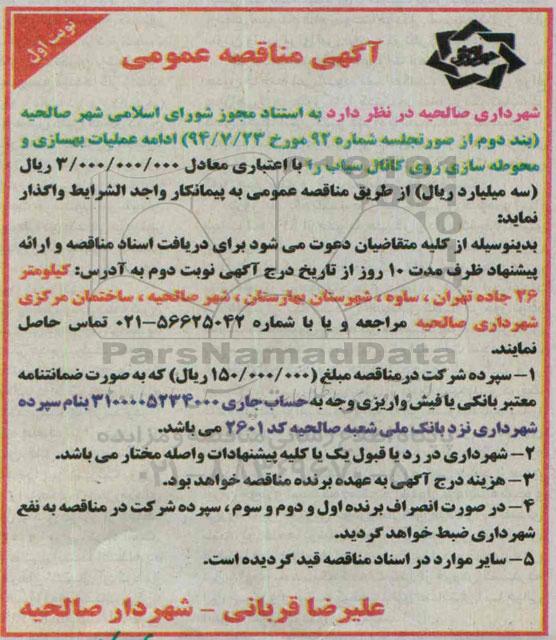 نوبت اول
آگهی مناقصه عمومی
شهرداری صالحیه در نظر دارد به استناد مجوز شورای اسلامی شهر صالحیه
(بند دوم از صورتجلسه شماره ۹۲ مورخ ۹۴/۷/۲۳) ادامه عملیات بهسازی و
محوطه سازی روی کانال ساب را با اعتباری معادل ۳/۰۰۰/۰۰۰/۰۰۰ ریال
(سه میلیارد ریال) از طریق مناقصه عمومی به پیمانکار واجد الشرایط واگذار
نماید:
بدینوسیله از کلیه متقاضیان دعوت می شود برای دریافت اسناد مناقصه و ارائه
پیشنهاد ظرف مدت ۱۰ روز از تاریخ درج آگهی نوبت دوم به آدرس: کیلومتر
۲۶ جاده تهران ، ساوه ، شهرستان بهارستان ، شهر صالحیه ، ساختمان مرکزی
شهرداری صالحیه مراجعه و یا با شماره ۵۶۶۲۵۰۴۲–۰۲۱ تماس حاصل
نمایند.
ParsNamadData
۱– سپرده شرکت در مناقصه مبلغ (۱۵۰/۰۰۰/۰۰۰ ریال) که به صورت ضمانتنامه
معتبر بانکی یا فیش واریزی وجه به حساب جاری ۳۱۰۰۰۰۵۲۳۴۰۰۰ بنام سپرده
شهرداری نزد بانک ملی شعبه صالحیه کد ۲۶۰۱ می باشد.
۲– شهرداری در رد یا قبول یک یا کلیه پیشنهادات واصله مختار می باشد.
۳– هزینه درج آگهی به عهده برنده مناقصه خواهد بود.
۴– در صورت انصراف برنده اول و دوم و سوم ، سپرده شرکت در مناقصه به نفع
شهرداری ضبط خواهد گردید.
۵– سایر موارد در اسناد مناقصه قید گردیده است.
علیرضا قربانی – شهردار صالحیه